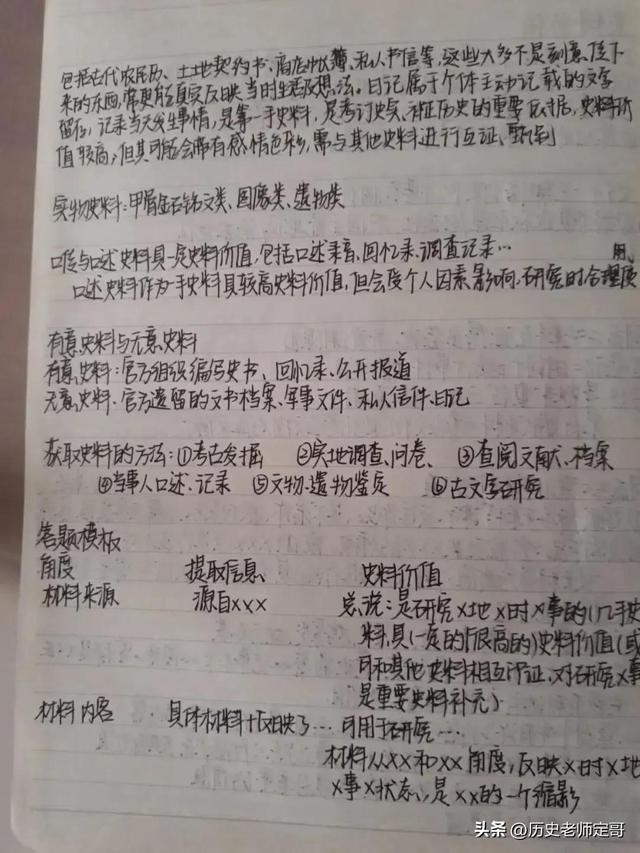 包括古代农民历、土地契约书、商店帐簿、私人书信等,这些大多不是刻意促下
来的东西,常更能真实反映当时生活及想法。日记属于个体主动记载的文字
留存,记录当天发生事情,是第一手史料,是考订史实、补证历史的重要依据,史料价
值较高,但其可能会带有感情色彩,需与其他史料进行互证、甄别
实物史料:甲骨金石铭文类、图像类、遗物类
口传与口述史料具一定史料价值,包括口述录音、回忆录、调查记录…
用
口述史料作为一手史料具较高史料价值,但会受个人因素影响,研究时合理
有意史料与无意史料
有意史料:官方组织编写史书、回忆录、公开报道
无意史料:官方遗留的文书档案、军事文件、私人信件、日记
获取史料的方法:①考古发掘 ②实地调查、问卷、 ③查阅文献、档案
④当事人口述、记录 ⑤文物、遗物鉴定 ⑥古文字研究
答题模板
角度 提取信息 史料价值
材料来源 源自xxx 总说:是研究x地x时x事的(几手史
料,具(一定的/很高的)史料价值(或
可和其他史料相互印证,对研究x事
是重要史料补充)
材料内容 具体材料+反映了… 可用于研究…
材料从xx和xx角度,反映x时x地
x事x状态,是xx的一个缩影
头条 @历史老师定哥